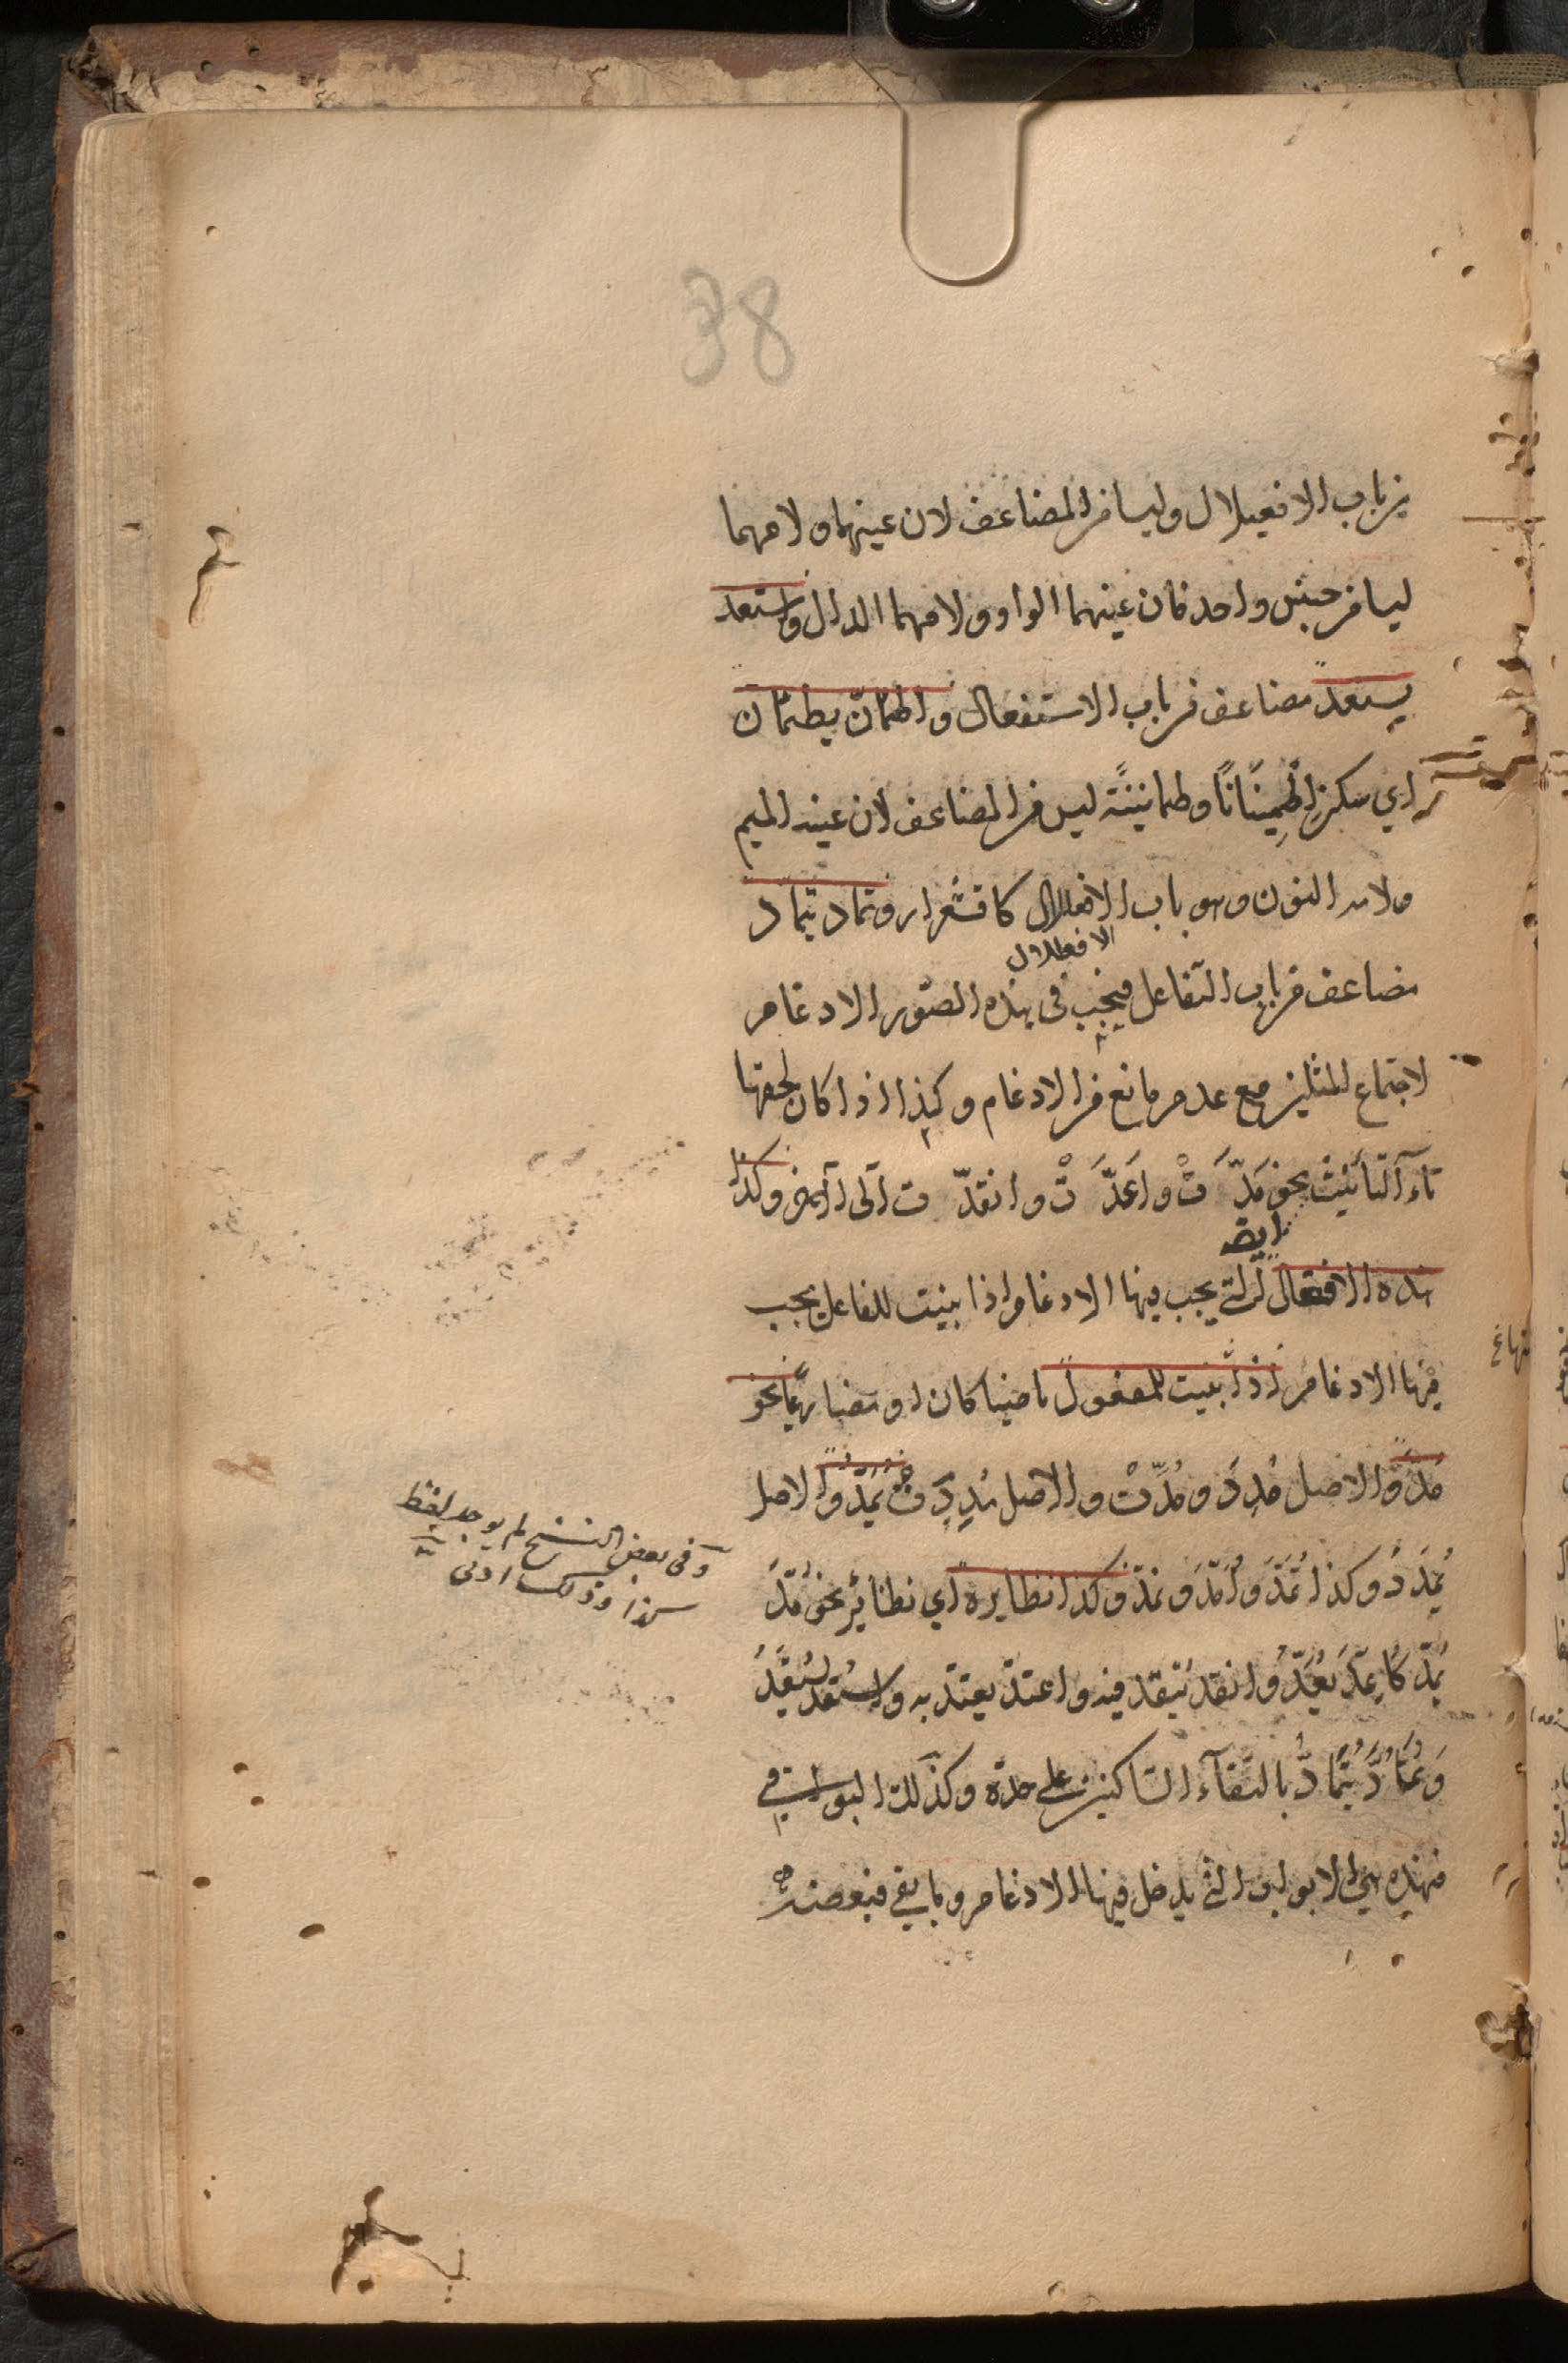 38
من باب الافعيلال وليسا من المضاعف لان عينهما ولامهما
ليسا من جنس واحد فان عينهما الواو ولامهما الدال واستعد
يستعد مضاعف من باب الاستفعال واطمأنّ يطمئن
اي سكن اطمِينَانًا وطمانينةً ليس من المضاعف لان عينه الميم
ولامه النون وهو باب الافعلال كاقشعرار وتمادّ يتمادّ
الافعلال
مضاعف من باب التفاعل فيجب في هذه الصور الادغام
لاجتماع المثلين مع عدم مانع من الادغام وكذا اذا كان لحقها
تآء التأنيث نحو مَدَّتْ واَعَدَّتْ وانقدّت الى آخره وكذا
ايضا
هذه الافعال التي يجب فيها الادغام اذا بنيت للفاعل يجب
فيها الادغام اذا بنيت للمفعول ماضيا كان او مضارعًا نحو
مُدَّ والاصل مُدِدَ ومُدَّتْ والاصل مُدِدَتْ يُمَدُّ والاصل
يُمْدَدُ وكذا تُمَدُّ واُمَدُّ ونُمَدُّ وكذا نظايره اي نظائر نحو مُدَّ
يُمَدُّ كاُعِدَّ يُعَدُّ وانقد يُنقد فيه واعتدّ يعتدّ به واستُعِدَّ يُستعَدُّ
وتُمُودَّ يُتَمَادُّ بالتقآء الساكنين على حده وكذلك البواقي
فهذه هي الابواب التي يدخل فيها الادغام وما بقي فبعضه
وفي بعض النسخ لم يوجد لفظ
كذا وذلك اولى